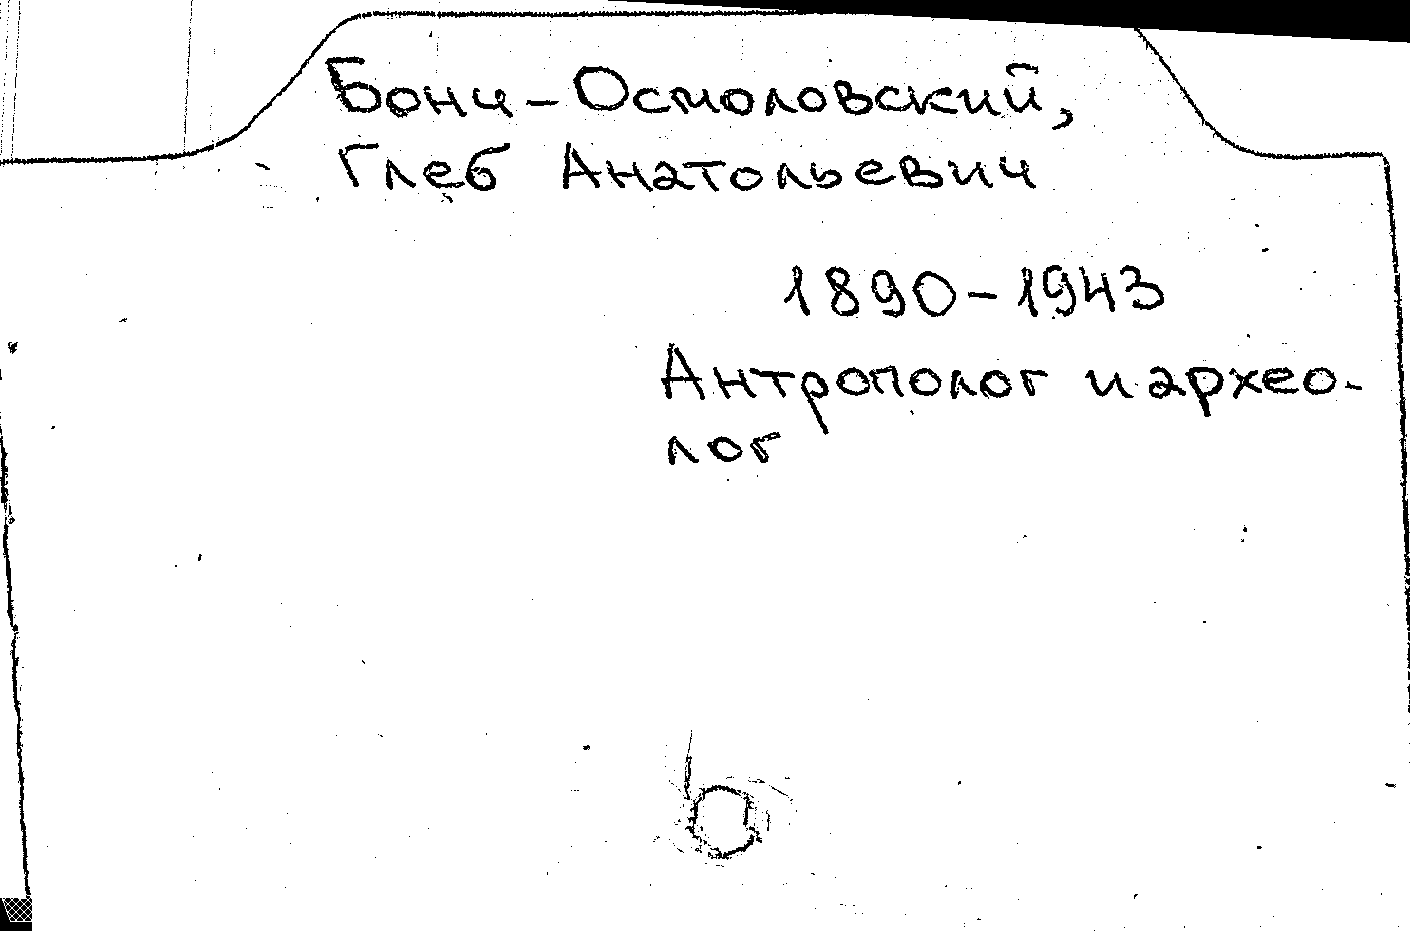 Бонч-Осмоловский,
Глеб Анатольевич
1890-1943
Антрополог и архео-
лог